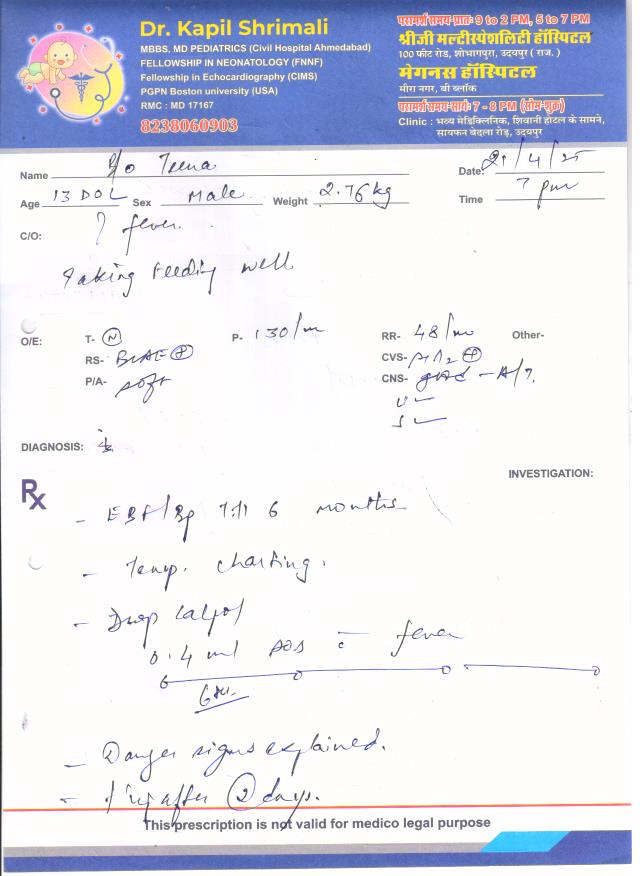 Dr. Kapil Shrimali
MBBS, MD PEDIATRICS (Civil Hospital Ahmedabad)
FELLOWSHIP IN NEONATOLOGY (FNNF)
Fellowship in Echocardiography (CIMS)
PGPN Boston university (USA)
RMC : MD 17167
8238060903
परामर्श समय-प्रातः 9 to 2 PM, 5 to 7 PM
श्रीजी मल्टीस्पेशलिटी हॉस्पिटल
100 फीट रोड, शोभागपुरा, उदयपुर ( राज. )
मेगनस हॉस्पिटल
मीरा नगर, बी ब्लॉक
परामर्श समय-सायं: 7 - 8 PM (सोम-शुक्र)
Clinic : भव्य मेडिक्लिनिक, शिवानी होटल के सामने,
सायफन बेदला रोड़, उदयपुर
Name B/o Teena Date: 21/4/25
Age 13 DOL Sex Male Weight 2.76 kg Time 7 pm
C/O: ? fever.
Taking feeding well
O/E: T- N P- 130/m RR- 48/m Other-
RS- BLAE + CVS- +
P/A- soft CNS- - A/?
U ✓
S ✓
DIAGNOSIS:
INVESTIGATION:
Rx
- EBF/ till 6 months
- Temp. charting.
- Drop calpol
0.4 ml SOS c̄ fever
6 hr.
- Danger signs explained.
- after 2 days.
This prescription is not valid for medico legal purpose